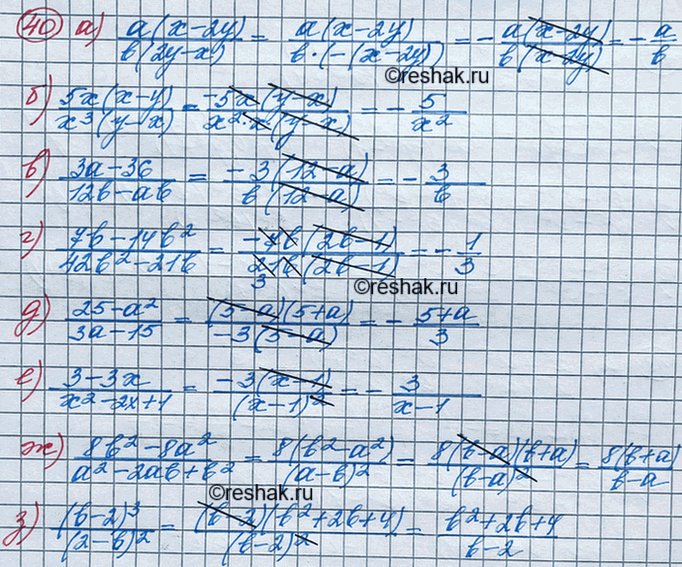 40 а) a(x-2y)/b(2y-x) = a(x-2y)/b·(-(x-2y)) = -a(x-2y)/b(x-2y) = -a/b
©reshak.ru
б) 5x(x-y)/x³(y-x) = -5x(y-x)/x²·x(y-x) = -5/x²
в) 3a-36/12b-ab = -3(12-a)/b(12-a) = -3/b
г) 7b-14b²/42b²-21b = -7b(2b-1)/21b(2b-1) = -1/3
3
©reshak.ru
д) 25-a²/3a-15 = (5-a)(5+a)/-3(5-a) = -5+a/3
е) 3-3x/x²-2x+1 = -3(x-1)/(x-1)² = -3/x-1
ж) 8b²-8a²/a²-2ab+b² = 8(b²-a²)/(a-b)² = 8(b-a)(b+a)/(b-a)² = 8(b+a)/b-a
©reshak.ru
з) (b-2)³/(2-b)² = (b-2)(b²+2b+4)/(b-2)² = b²+2b+4/b-2